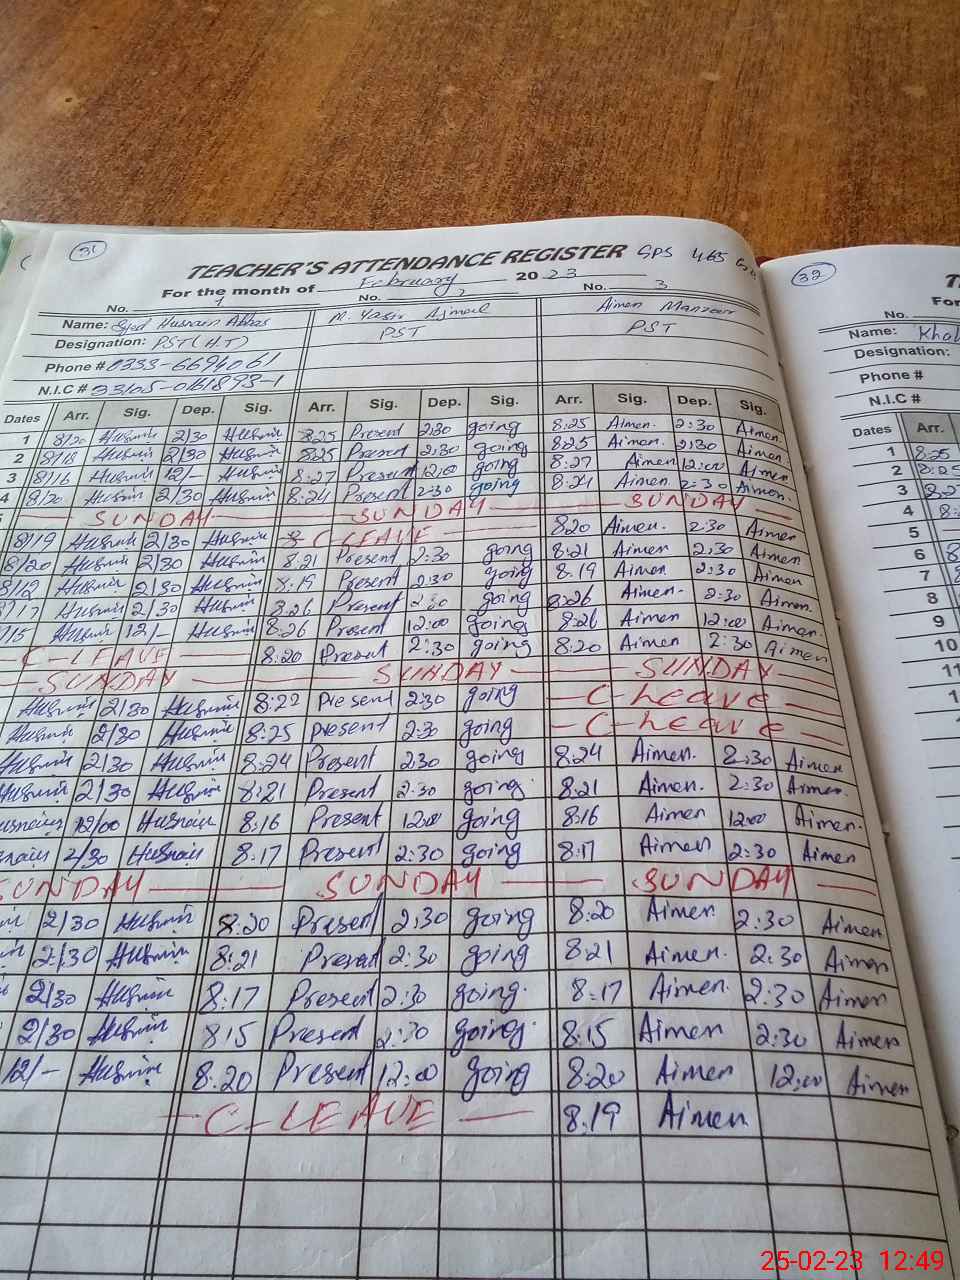 31
TEACHER'S ATTENDANCE REGISTER GPS 465
For the month of February 2023
No. 1 No. 2 No. 3
Name: Syed Husnain Abbas M. Yasir Ajmal Aimen Manzoor
Designation: PST (H.T) PST PST
Phone # 0333-6694061
N.I.C # 33105-0161898-1
Dates Arr. Sig. Dep. Sig. Arr. Sig. Dep. Sig. Arr. Sig. Dep. Sig.
1 8/20 Husnain 2/30 Husnain 8:25 Present 2:30 going 8:25 Aimen. 2:30 Aimen.
2 8/18 Husnain 2/30 Husnain 8:25 Present 2:30 going 8:25 Aimen. 2:30 Aimen
3 8/16 Husnain 12/- Husnain 8:27 Present 12:00 going 8:27 Aimen 12:00 Aimen
4 8/20 Husnain 2/30 Husnain 8:24 Present 2:30 going 8:24 Aimen 2:30 Aimen.
SUNDAY SUNDAY SUNDAY
8/19 Husnain 2/30 Husnain C-LEAVE 8:20 Aimen. 2:30 Aimen
8/20 Husnain 2/30 Husnain 8:21 Present 2:30 going 8:21 Aimen 2:30 Aimen
8/12 Husnain 2/30 Husnain 8:19 Present 2:30 going 8:19 Aimen 2:30 Aimen
/17 Husnain 2/30 Husnain 8:26 Present 2:30 going 8:26 Aimen. 2:30 Aimen.
/15 Husnain 12/- Husnain 8:26 Present 12:00 going 8:26 Aimen 12:00 Aimen.
C-LEAVE 8:20 Present 2:30 going 8:20 Aimen 2:30 Aimen
SUNDAY SUNDAY SUNDAY
Husnain 2/30 Husnain 8:22 Present 2:30 going C-Leave
Husnain 2/30 Husnain 8:25 present 2:30 going C-Leave
Husnain 2/30 Husnain 8:24 Present 2:30 going 8:24 Aimen. 2:30 Aimen
Husnain 2/30 Husnain 8:21 Present 2:30 going 8:21 Aimen. 2:30 Aimen.
12/00 Husnain 8:16 Present 12:00 going 8:16 Aimen 12:00 Aimen.
2/30 Husnain 8:17 Present 2:30 going 8:17 Aimen 2:30 Aimen
SUNDAY SUNDAY SUNDAY
2/30 Husnain 8:20 Present 2:30 going 8:20 Aimen. 2:30 Aimen
2/30 Husnain 8:21 Present 2:30 going 8:21 Aimen. 2:30 Aimen
2/30 Husnain 8:17 Present 2:30 going. 8:17 Aimen. 2:30 Aimen
2/30 Husnain 8:15 Present 2:30 going. 8:15 Aimen 2:30 Aimen
12/- Husnain 8:20 Present 12:00 going 8:20 Aimen 12:00 Aimen
C-LEAVE 8:19 Aimen
32
No.
Name:
Designation:
Phone #
N.I.C #
Dates Arr.
1 8:25
2 8:25
3
4
5
6
7
8
9
10
25-02-23 12:49